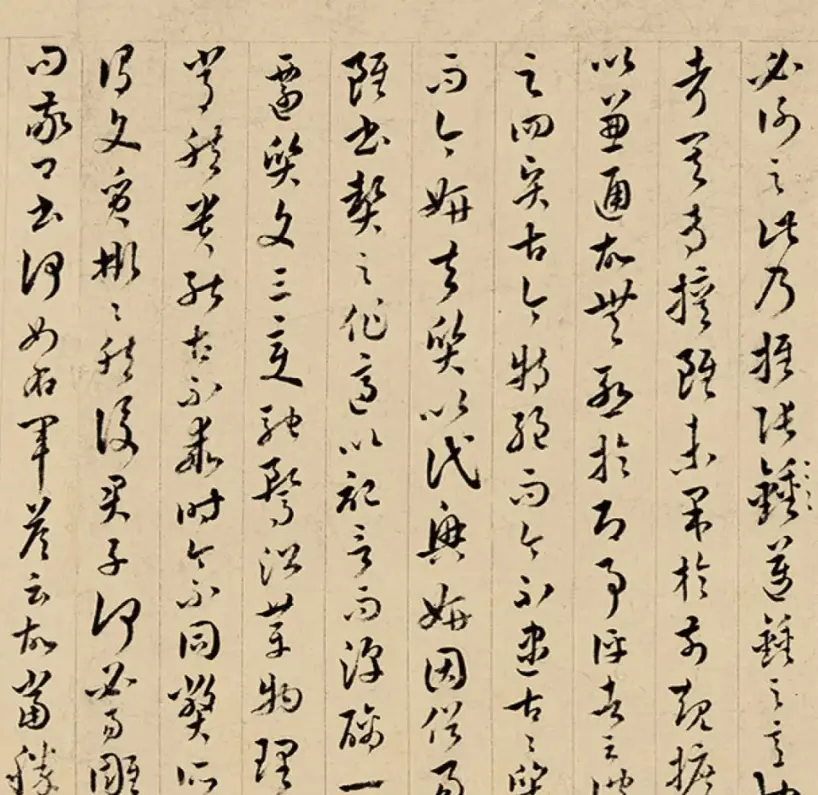 必謝之此乃推張鍾邁鍾之意也
考其專擅雖未果於前規摭
以兼通故無慙於即事評者云彼
之四賢古今特絕而今不逮古古質
而今妍夫質以代興妍因俗易
雖書契之作適以記言而淳醨一
遷質文三變馳騖沿革物理
常然貴能古不乖時今不同弊所
謂文質彬彬然後君子何必易雕
問敬卿書何如右軍答云故當勝